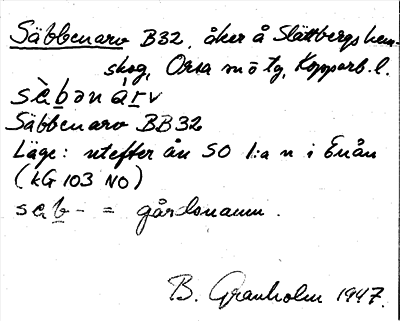 Säbbenarv B32, åker å Slättbergs hem-
skog, Orsa sn ö tg, Kopparb. l.
sàbənárv
Säbbenarv BB32
Läge: utefter ån SO l:a n i Enån
(KG 103 NO)
sab- = gårdsnamn.
B. Granholm 1947.